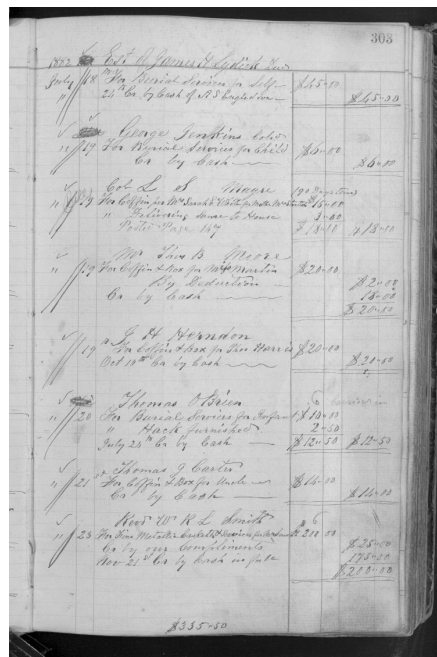 303
1872 Est of James H Lydick
July 18 For Burial Services for Self $45-00
" 24th Cr by Cash of A S England $45-00
George Jenkins Col
" 19 For Burial Services for Child $6-00
Cr by Cash $6-00
Col L S Magre
" 19 For Coffin for Mrs Sarah White $15-00
" Delivering same to House 3-00
Posted Page 147 $18-00 $18-00
Mr Thos B Moore
" 19 For Coffin & Box for Martin $20-00
By Deduction $2-00
Cr by Cash 18-00
$20-00
J H Herndon
" 19 For Coffin & Box for Harris $20-00
Oct 10th Cr by Cash $20-00
Thomas OBrien
" 20 For Burial Services for Infant $10-00
" Hack furnished 2-50
July 24th Cr by Cash $12-50 $12-50
Thomas J Carter
" 21 For Coffin & Box for Uncle $14-00
Cr by Cash $14-00
Revd W R L Smith
" 23 For Fine Metallic Casket & Services for $200 00
Cr by our Compliments $25-00
Nov 21st Cr by Cash in full 175-00
$200-00
$335-50